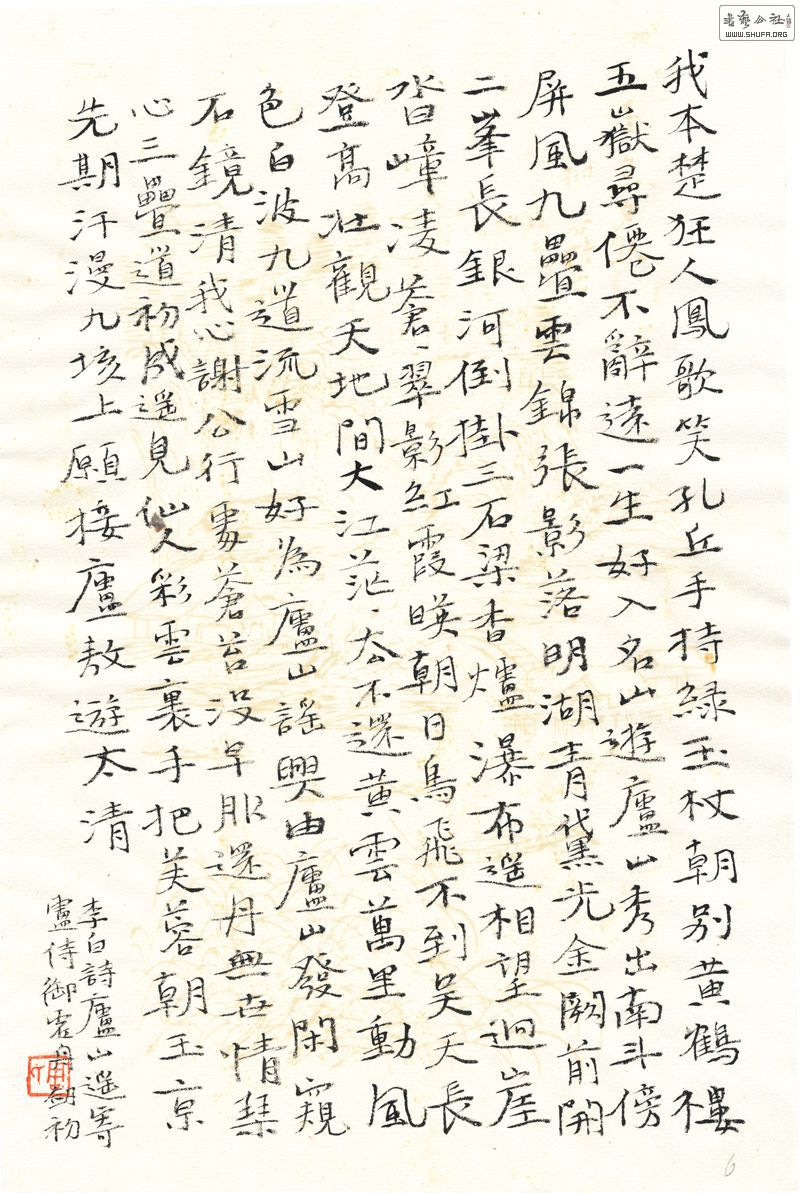 我本楚狂人鳳歌笑孔丘手持緑玉杖朝别黄鶴樓
五嶽尋僊不辭遠一生好入名山遊廬山秀出南斗傍
屏風九疊雲錦張影落明湖青黛光金闕前開
二峯長銀河倒掛三石梁香爐瀑布遥相望迥崖
沓嶂凌蒼蒼翠影紅霞映朝日鳥飛不到吴天長
登高壯觀天地間大江茫茫去不還黄雲萬里動風
色白波九道流雪山好為廬山謡興由廬山發閑窺
石鏡清我心謝公行處蒼苔没早服還丹無世情琴
心三疊道初成遥見仙人彩雲裏手把芙蓉朝玉京
先期汗漫九垓上願接廬敖遊太清
李白詩廬山遥寄
盧侍御虚舟
書藝公社
WWW.SHUFA.ORG
6